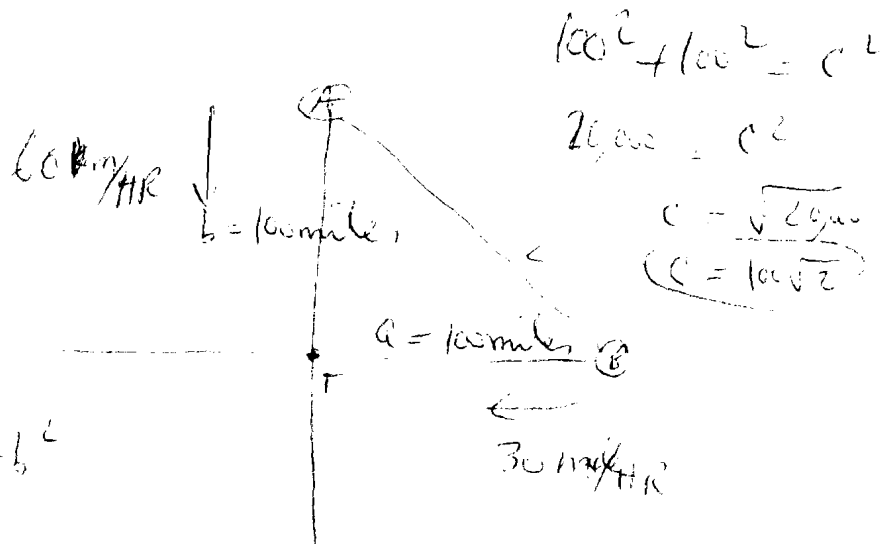 100² + 100² = c²
20,000 = c²
c = √20,000
c = 100√2
A
60 m/HR
b = 100 miles
c
a = 100 miles
B
T
30 mi/HR
b²